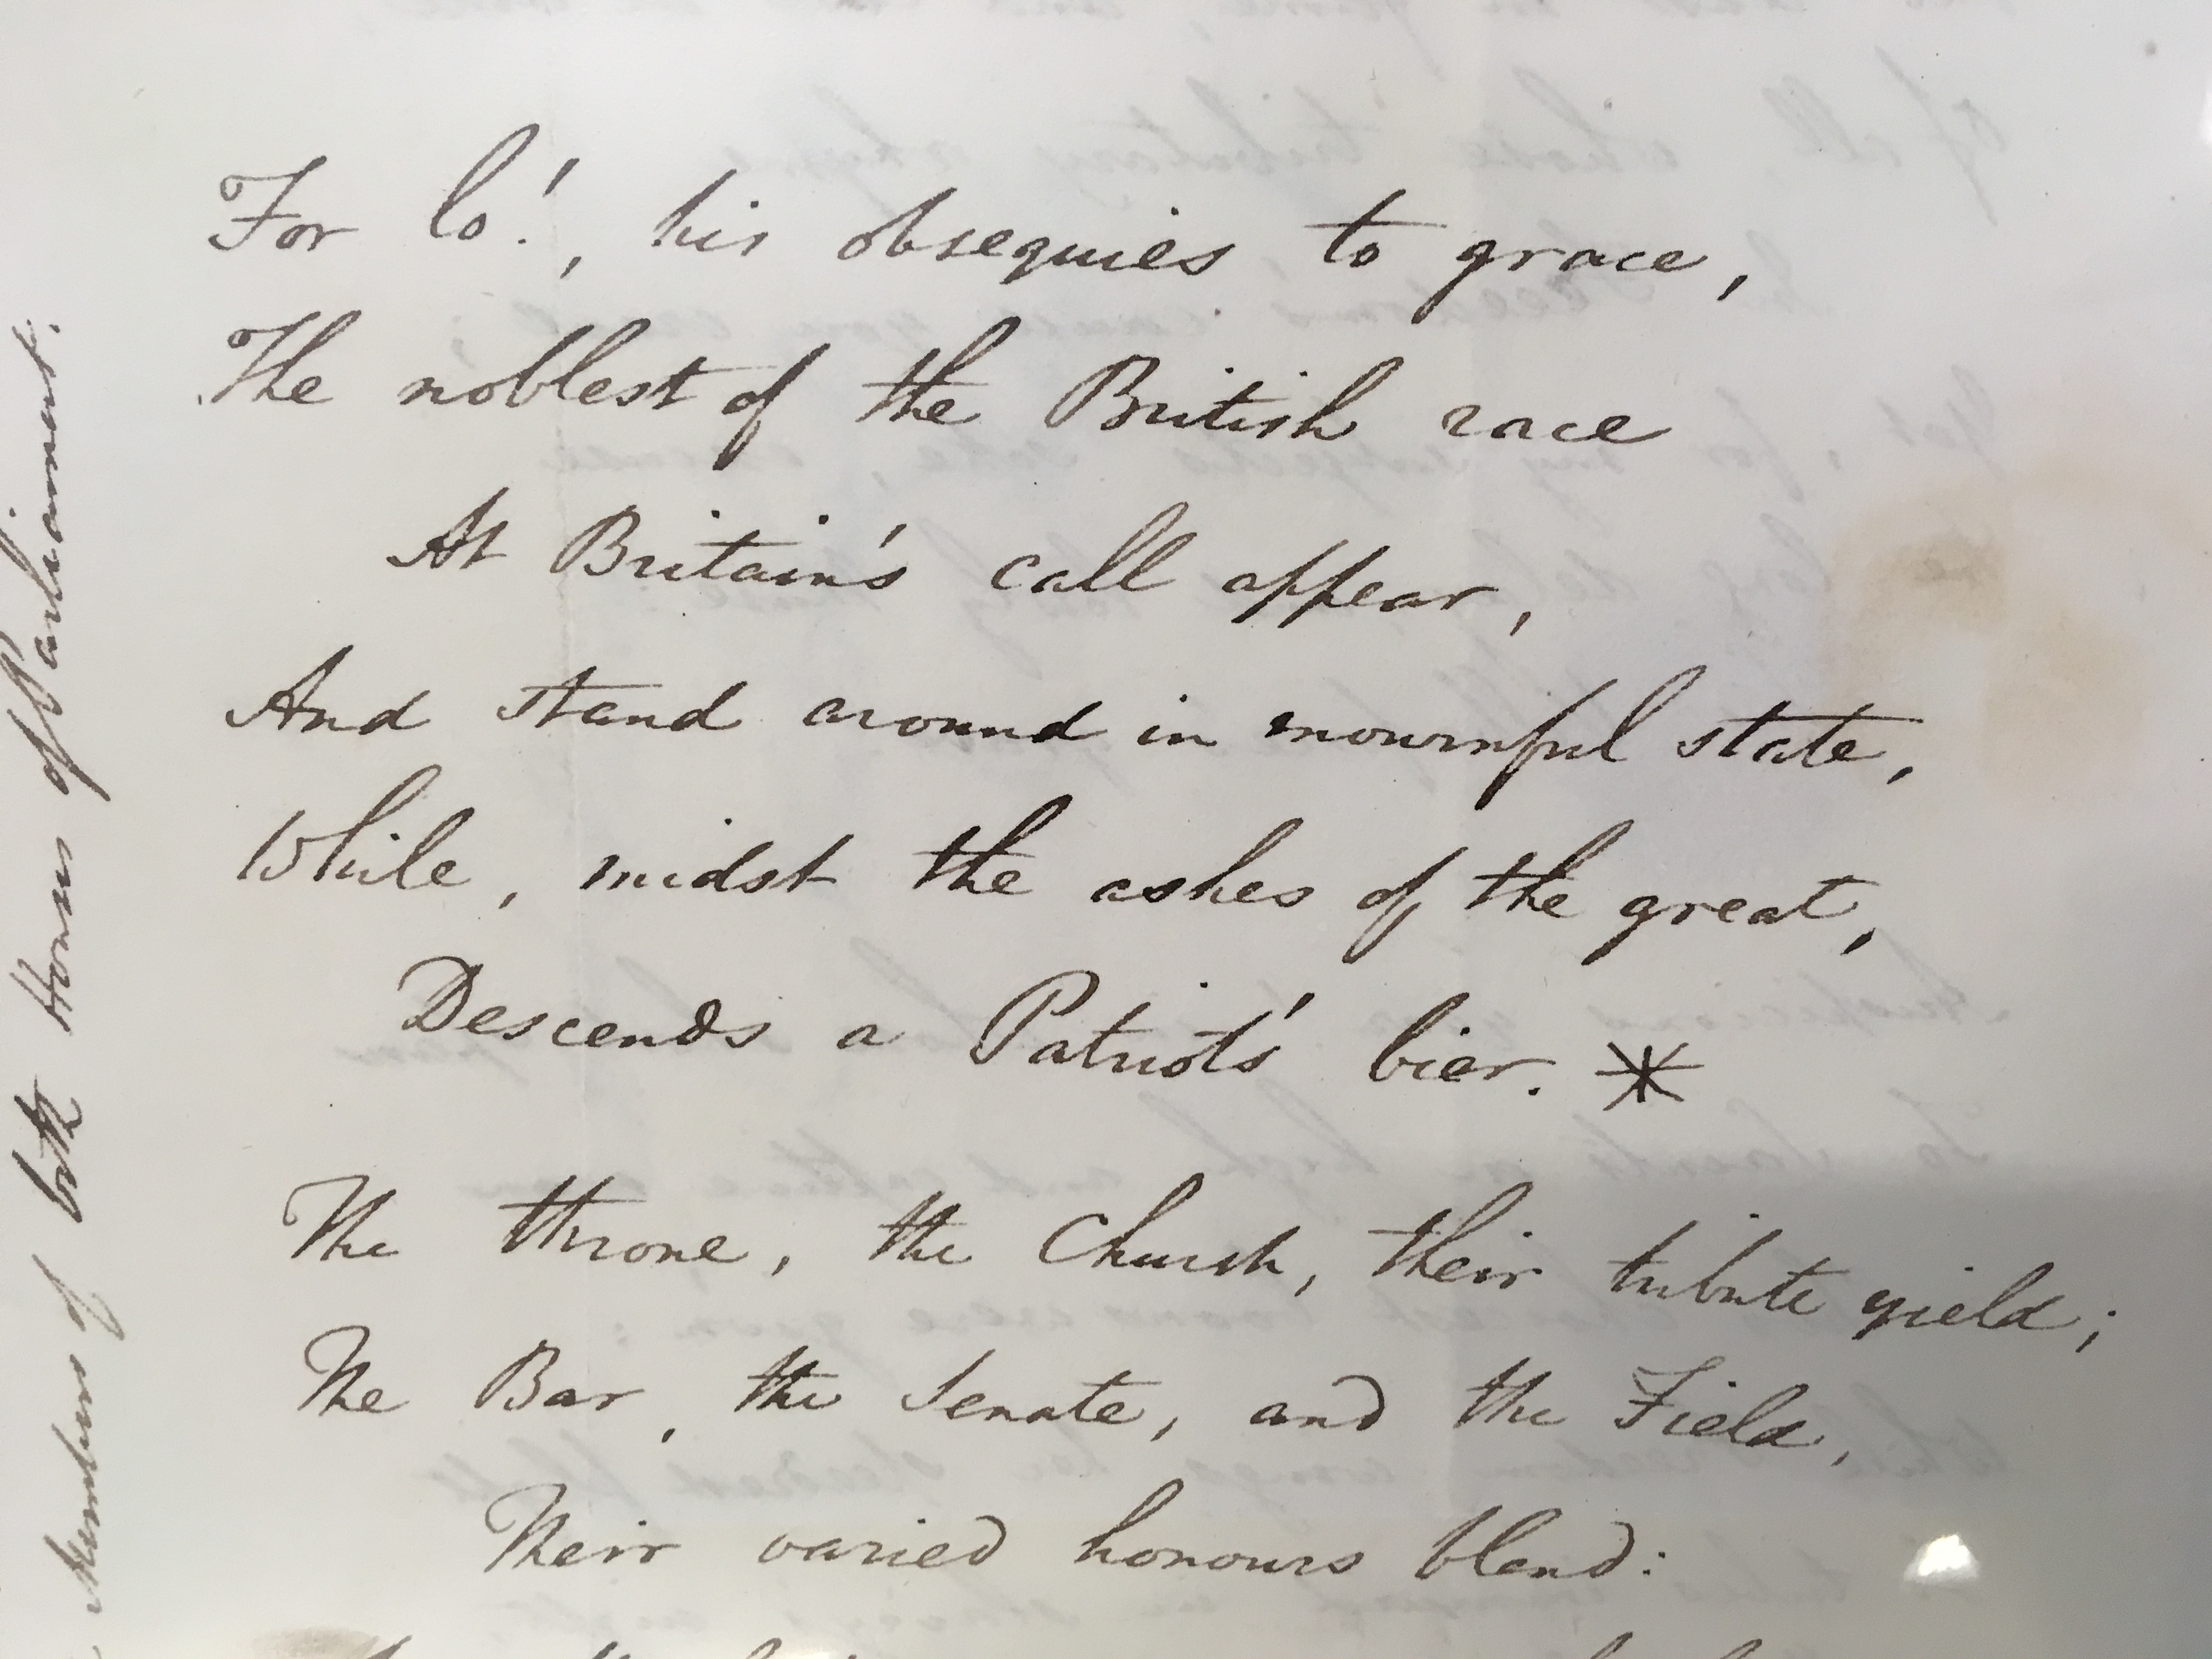 For lo!, his obsequies to grace,
The noblest of the British race
At Britain's call appear,
And stand around in mournful state,
While, midst the ashes of the great,
Descends a Patriot's bier. *
The throne, the Church, their tribute yield;
The Bar, the Senate, and the Field,
Their varied honours blend:
Members of both Houses of Parliament.